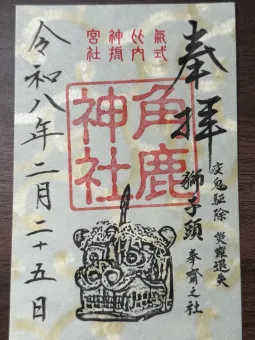 奉拝
疫鬼駆除 災難退失
獅子頭 奉齋之社
式内
神社
角鹿
神社
令和八年二月二十五日